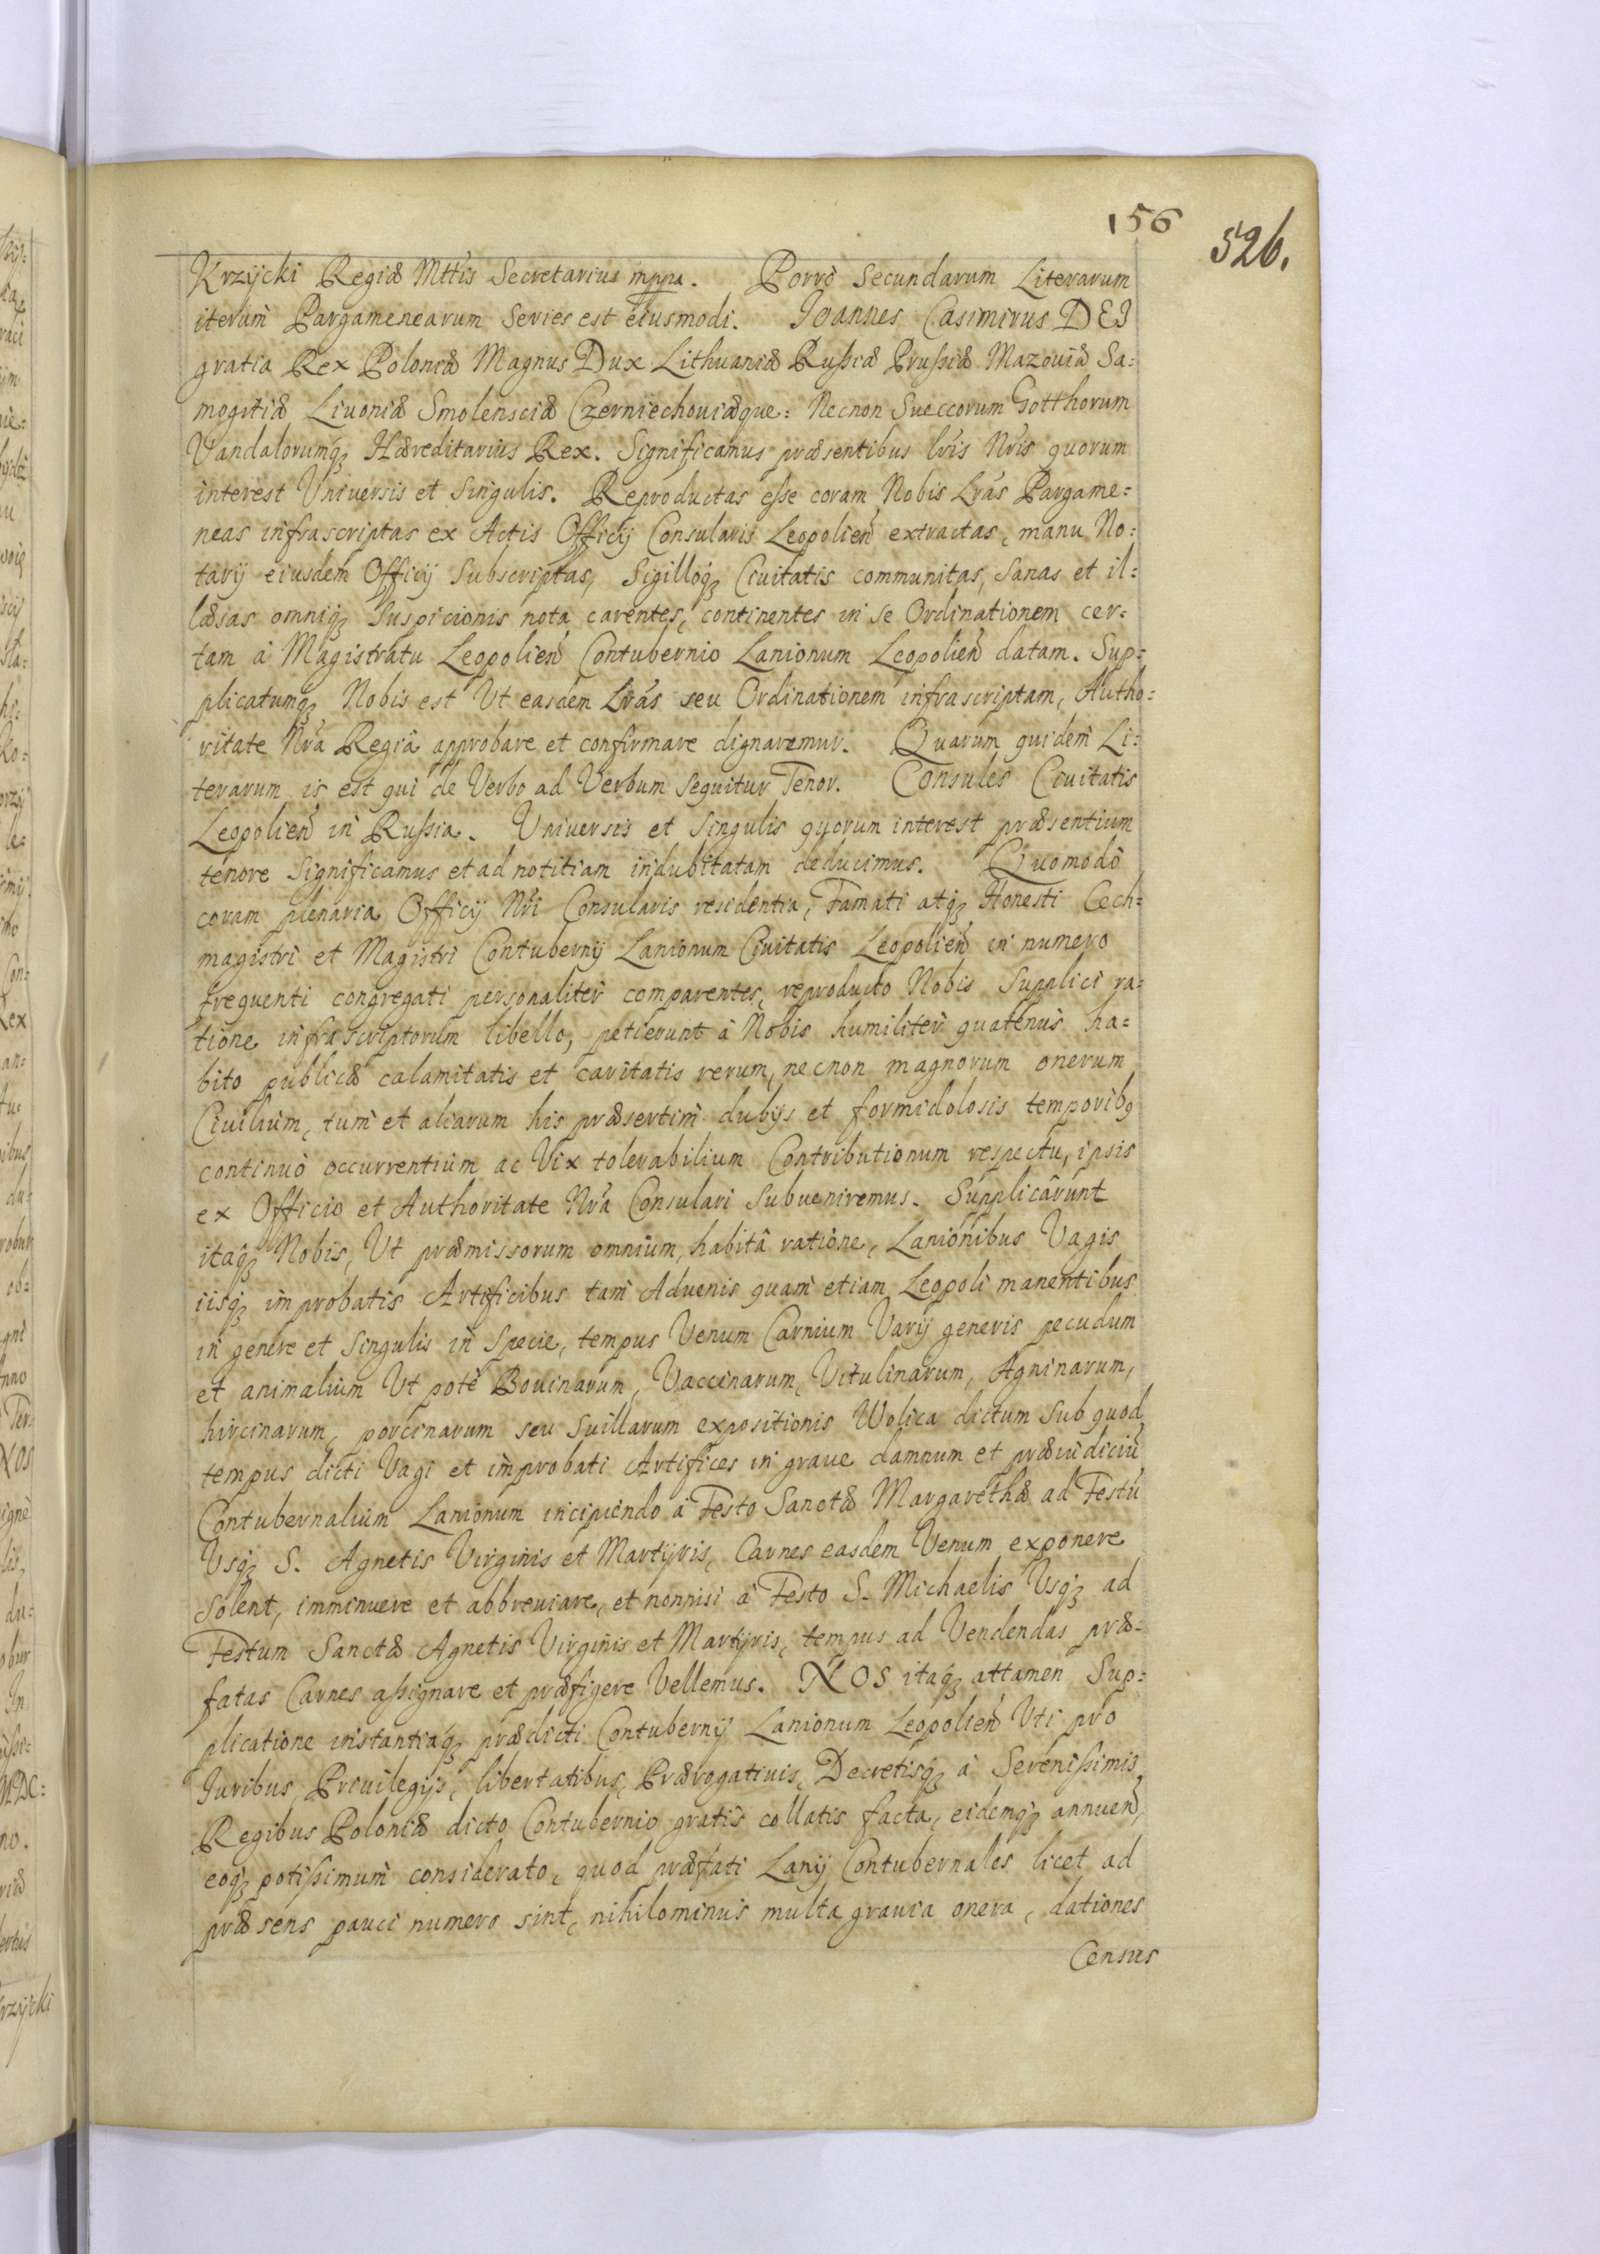 156
526.
Krzÿcki Regiæ Mttis Secretarius mppa. Porrò Secundarum Literarum
iterùm Pargamenearum Series est eiusmodi. Ioannes Casimirus DEI
gratia Rex Poloniæ Magnus Dux Lithuaniæ Rußiæ Prußiæ Mazouiæ Sa:
mogitiæ Liuoniæ Smolensciæ Czerniechouiæque: Necnon Sueccorum Gotthorum
Vandalorumq́ꝫ Hæreditarius Rex. Significamus præsentibus lr̃is Nr̃is quorum
interest Vniuersis et Singulis. Reproductas eße coram Nobis Lr̃as Pargame:
neas infrascriptas ex Actis Officij Consularis Leopolień extractas, manu No:
tarij eiusdem Officij Subscriptas, Sigilloq́ꝫ Ciuitatis communitas, Sanas et il:
læsas omniq́ꝫ Suspicionis nota carentes, continentes in se Ordinationem cer:
tam à Magistratu Leopolień Contubernio Lanionum Leopolień datam. Sup:
plicatumq́ꝫ Nobis est Vt easdem Lr̃as seu Ordinationem infrascriptam, Autho:
ritate Nr̃a Regiâ approbare et confirmare dignaremur. Quarum quidem Li:
terarum is est qui de Verbo ad Verbum Sequitur Tenor. Consules Ciuitatis
Leopolień in Rußia. Vniuersis et Singulis quorum interest præsentium
tenore Significamus et ad notitiam indubitatam deducimus. Quomodò
coram plenaria Officij Nr̃i Consularis residentia, Famati atq́ꝫ Honesti Cech:
magistri et Magistri Contubernij Lanionum Ciuitatis Leopolień in numero
frequenti congregati personalitèr comparentes, reproducto Nobis Supplici ra:
tione infrascriptorum libello, petierunt à Nobis humilitèr quatenùs ha:
bito publicæ calamitatis et caritatis rerum, necnon magnorum onerum
Ciuilium, tum et aliarum his præsertim dubijs et formidolosis temporibꝫ
continuò occurrentium ac Vix tolerabilium Contributionum respectu, ipsis
ex Officio et Authoritate Nr̃a Consulari Subueniremus. Supplicârunt
itaq́ꝫ Nobis, Vt præmissorum omnium, habitâ ratione, Lanionibus Vagis
iisq́ꝫ improbatis Artificibus tam Aduenis quam etiam Leopoli manentibus
in genere et Singulis in Specie, tempus Venum Carnium Varij generis pecudum
et animalium Vt potè Bouinarum, Vaccinarum, Vitulinarum, Agninarum,
hircinarum, porcinarum seu Suillarum expositionis Wolica dictum Sub quod
tempus dicti Vagi et improbati Artifices in graue damnum et præiudiciũ
Contubernalium Lanionum incipiendo à Festo Sanctæ Margarethæ ad Festũ
Vsq́ꝫ S. Agnetis Virginis et Martÿris, Carnes easdem Venum exponere
Solent, imminuere et abbreuiare, et nonnisi à Festo S. Michaelis Vsq́ꝫ ad
Festum Sanctæ Agnetis Virginis et Martÿris, tempus ad Vendendas præ:
fatas Carnes aßignare et præfigere Vellemus. NOS itaq́ꝫ attamen Sup:
plicatione instantiaq́ꝫ prædicti Contubernij Lanionum Leopolień Vti pro
Iuribus Priuilegijs, libertatibus, Prærogatiuis, Decretisq́ꝫ à Serenißimis
Regibus Poloniæ dicto Contubernio gratis collatis facta, eidemq́ꝫ annueń,
eoq́ꝫ potißimum considerato, quod præfati Lanij Contubernales licet ad
præsens pauci numero sint, nihilominus multa grauia onera, dationes
Census